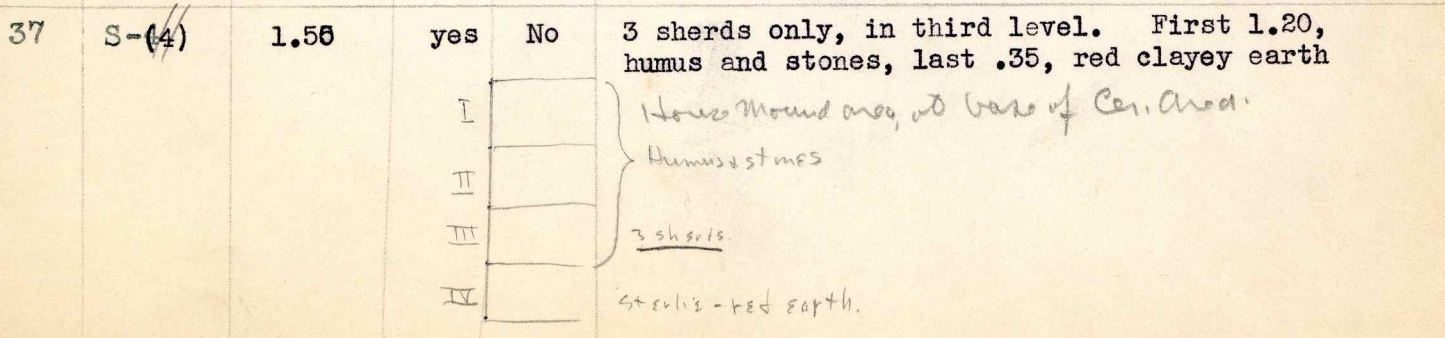 37 S-(4) 1.55 yes No 3 sherds only, in third level. First 1.20,
humus and stones, last .35, red clayey earth
I House Mound area, at base of Cer. Area.
Humus & stones
II
III 3 sherds.
IV Sterile - red earth.